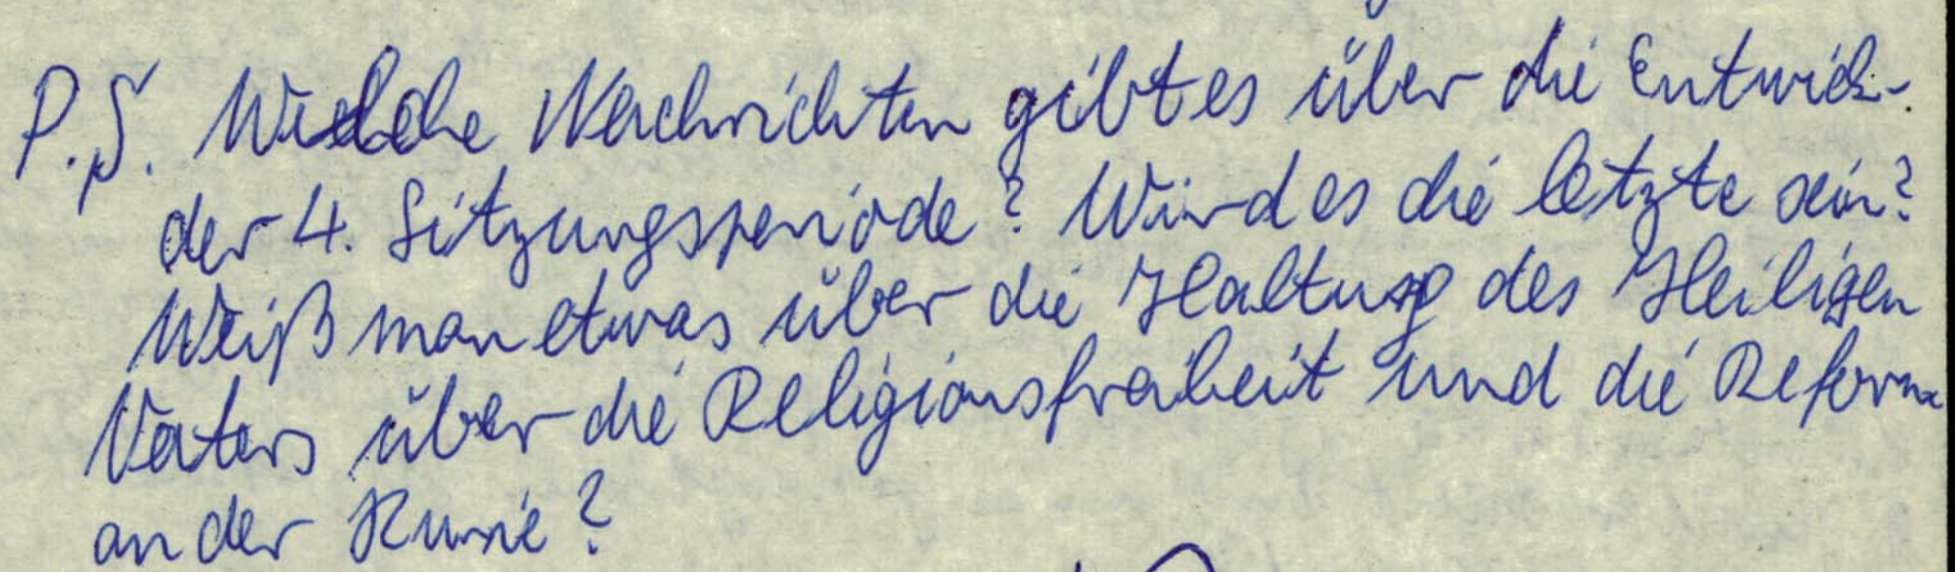 P.S. Welche Nachrichten gibt es über die Entwick-
der 4. Sitzungsperiode? Wird es die letzte sein?
Weiß man etwas über die Haltung des Heiligen
Vaters über die Religionsfreiheit und die Reform
an der Kurie?